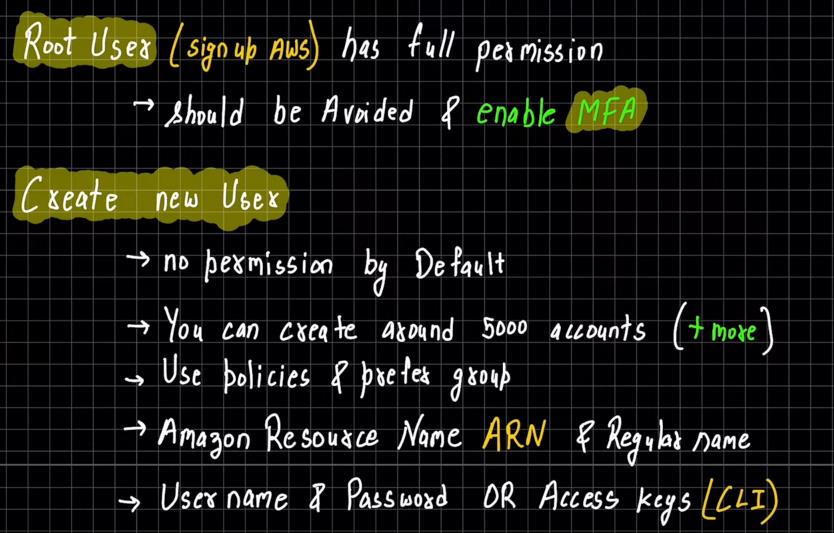 Root User (sign up AWS) has full permission
→ should be Avoided & enable MFA
Create new User
→ no permission by Default
→ You can create around 5000 accounts (+ more)
→ Use policies & prefer group
→ Amazon Resource Name ARN & Regular name
→ Username & Password OR Access keys (CLI)